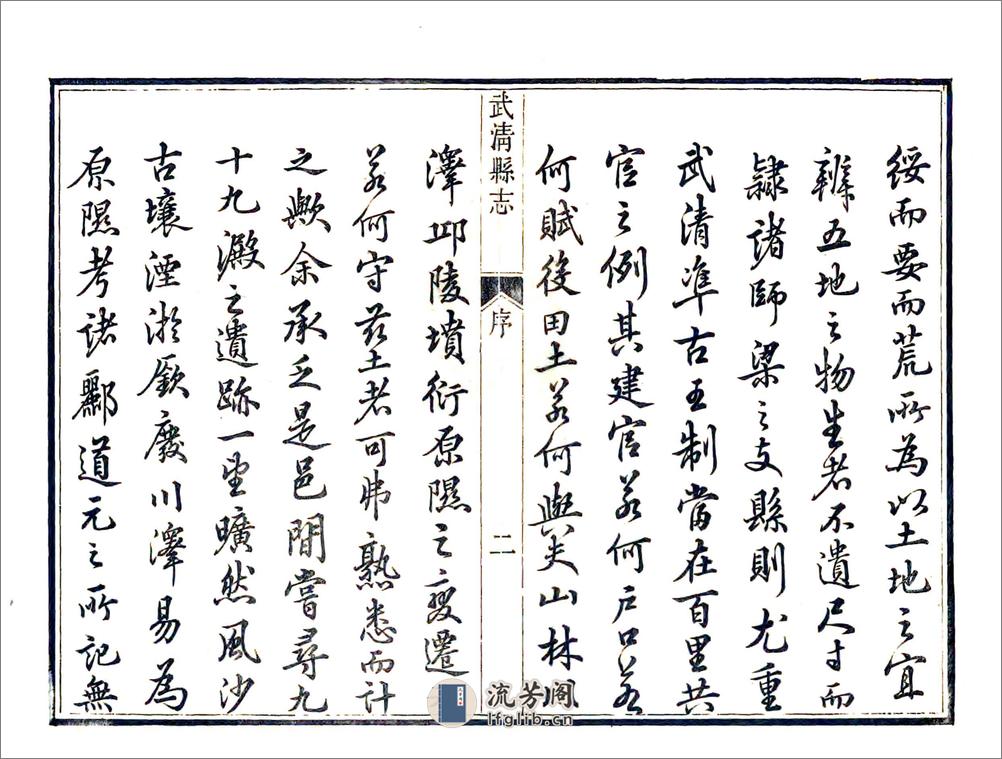 綏而要而荒所為以土地之宜
辨五地之物生者不遺尺寸而
隸諸師梁之支縣則尤重
武清準古王制當在百里共
官之例其建官若何戶口若
何賦役田土若何與夫山林川
武清縣志
序
二
澤邱陵墳衍原隰之變遷
若何守茲土者可弗熟悉而計
之歟余承乏是邑間嘗尋九
十九澱之遺跡一望曠然風沙
古壤湮淤厥廢川澤易為
原隰考諸酈道元之所記無
流芳阁
lfglib.cn